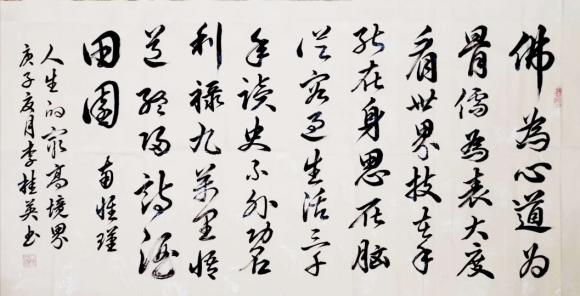 佛為心道为
骨儒為表大度
看世界技在手
能在身思在脑
從容过生活三千
年读史不外功名
利禄九萬里悟
道终归诗酒
田園 南怀瑾
人生的最高境界
庚子夏月李桂英书